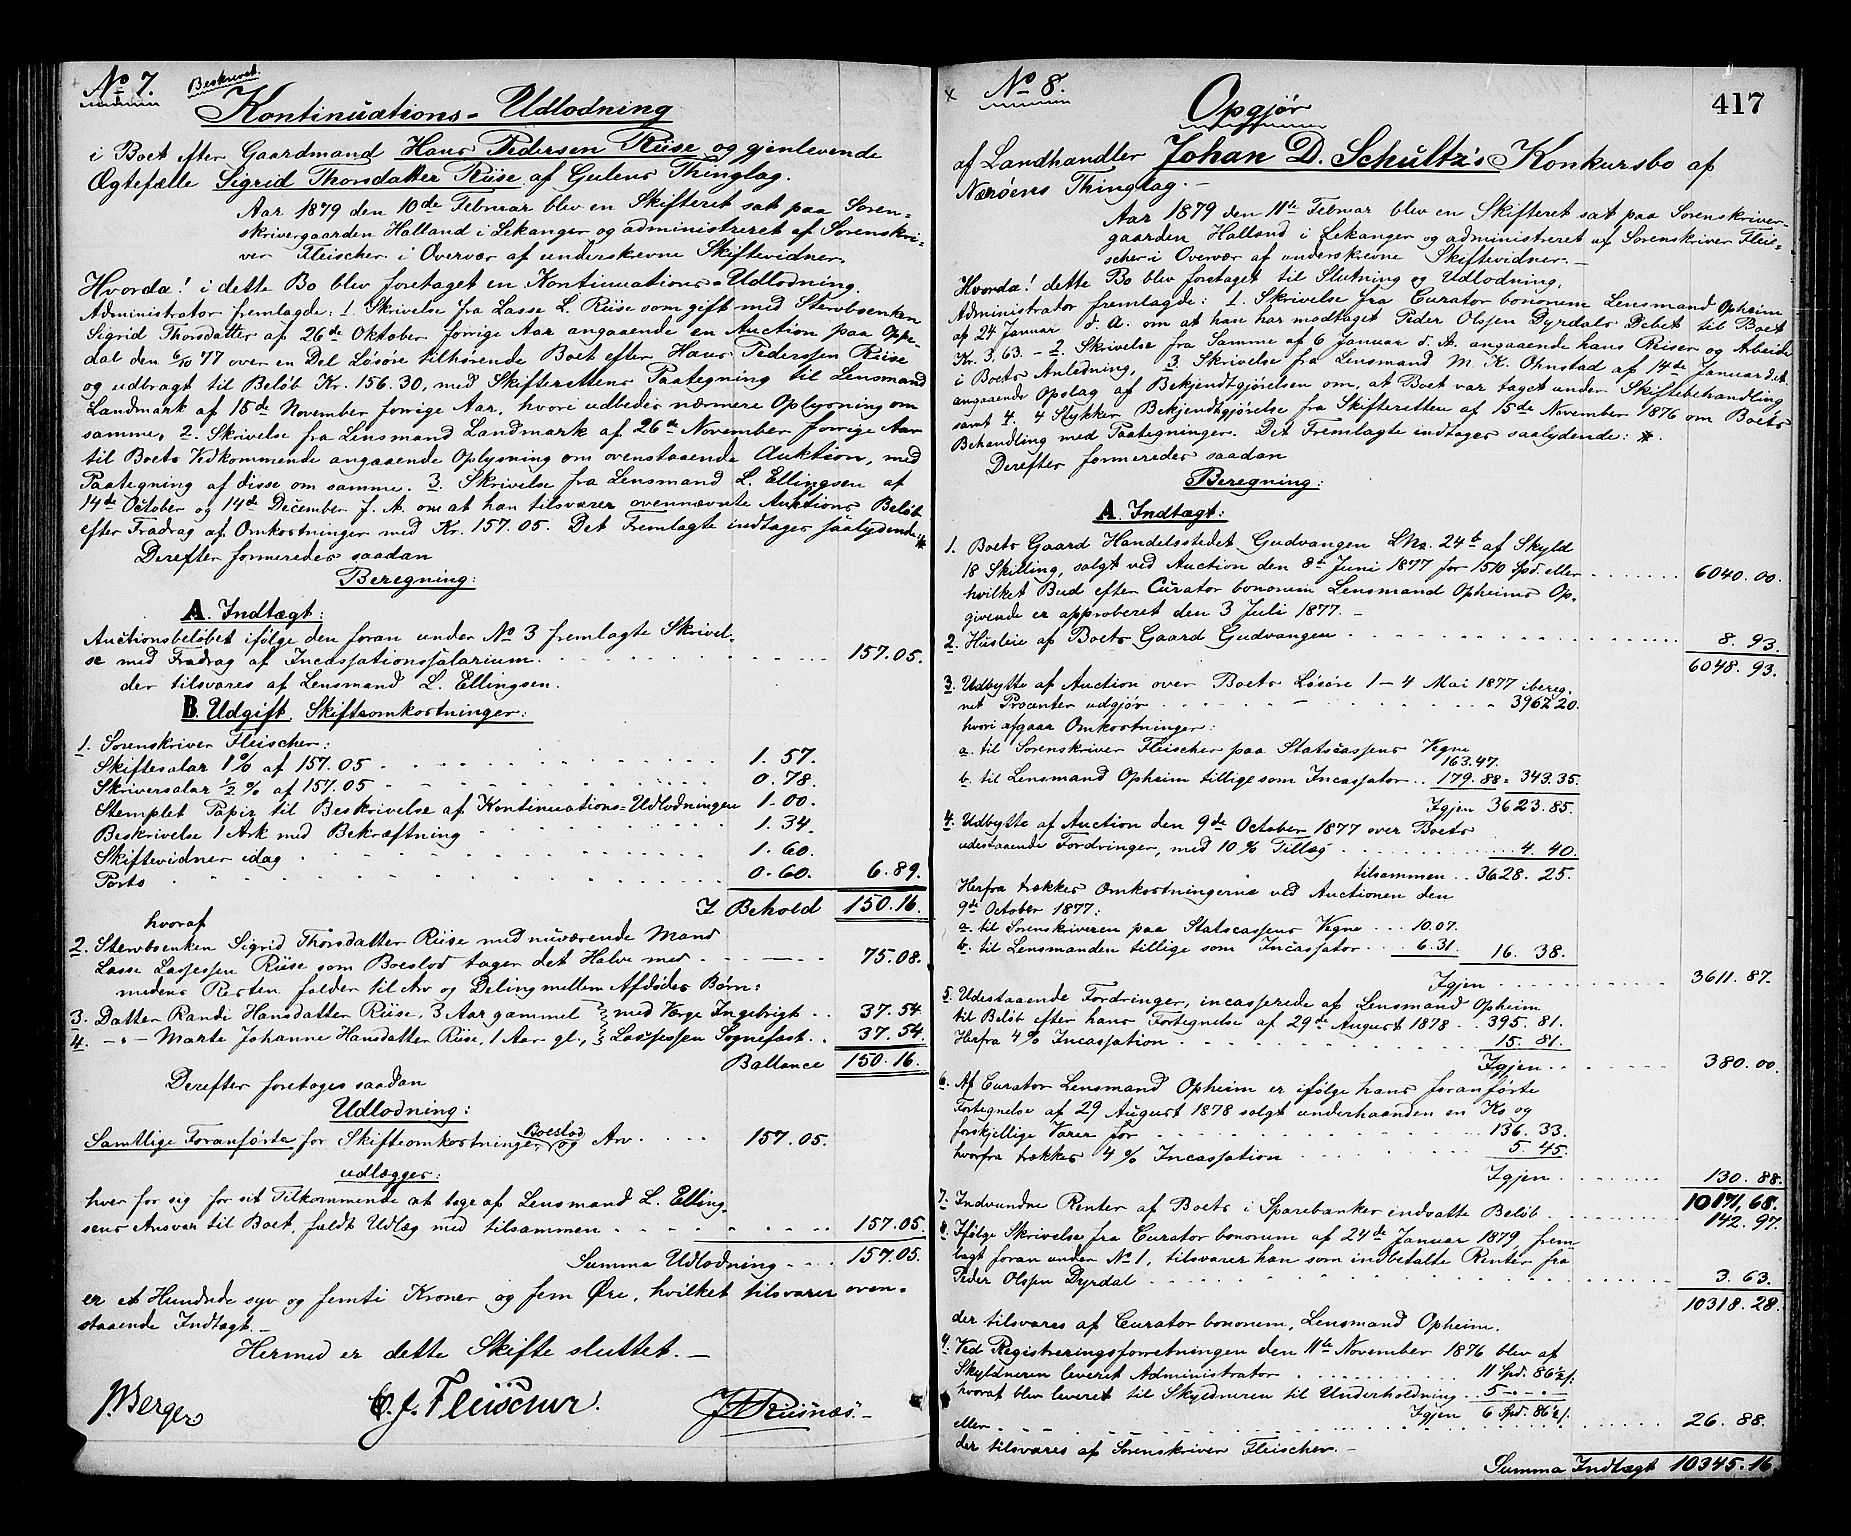 No 7. Beskrevet.
Kontinuations-Udlodning
i Boet efter Gaardmand Hans Pedersen Riise og gjenlevende
Ægtefælle Sigrid Thorsdatter Riise af Gulens Thinglag.
Aar 1879 den 10de Februar blev en Skifteret sat paa Soren-
skrivergaarden Halland i Lekanger og administreret af Sorenskri-
ver Fleischer i Overvær af underskrevne Skiftevidner.
Hvorda! i dette Bo blev foretaget en Kontinuations-Udlodning.
Administrator fremlagde: 1. Skrivelse fra Lasse L. Riise som gift med Stervbsenken
Sigrid Thorsdatter af 26de Oktober forrige Aar angaaende en Auction paa Oppe-
dal den 6/10 77 over en Del Løsøre tilhørende Boet efter Hans Pederssen Riise
og udbragt til Beløb Kr. 156.30, med Skifterettens Paategning til Lensmand
Landmark af 15de November forrige Aar, hvori udbedes nærmere Oplysning om
samme, 2. Skrivelse fra Lensmand Landmark af 26de November forrige Aar
til Boets Vedkommende angaaende Oplysning om ovenstaaende Auktion, med
Paategning af disse om samme. 3. Skrivelse fra Lensmand L. Ellingsen af
14de October og 14de December f. A. om at han tilsvarer ovennævnte Auktions Beløb
efter Fradrag af Omkostninger med Kr. 157.05. Det Fremlagte indtages saalydende: *
Derefter formeredes saadan
Beregning:
A. Indtægt:
Auctionsbeløbet ifølge den foran under No 3 fremlagte Skrivel-
se med Fradrag af Incassationssalarium . . . 157.05.
der tilsvares af Lensmand L. Ellingsen.
B. Udgift. Skifteomkostninger:
1. Sorenskriver Fleischer:
Skiftesalar 1 % af 157.05 . . . 1. 57.
Skriversalar 1/2 % af 157.05 . . . 0. 78.
Stemplet Papir til Beskrivelse af Kontinuations-Udlodningen 1. 00.
Beskrivelse 1 Ark med Bekræftning . . . 1. 34.
Skiftevidner idag . . . 1. 60.
Porto . . . 0. 60. 6. 89.
I Behold 150. 16.
hvoraf
2. Stervbsenken Sigrid Thorsdatter Riise med nuværende Mand
Lasse Lassessen Riise som Boeslod tager det Halve med . . . 75. 08.
medens Resten falder til Arv og Deling mellem Afdødes Børn:
3. Datter Randi Hansdatter Riise, 3 Aar gammel } med Værge Ingebrigt . . 37. 54
4. — " — Marte Johanne Hansdatter Riise, 1 Aar gl., } Lassessen Sognefast . . 37. 54.
Ballance 150. 16.
Derefter foretoges saadan
Udlodning:
Samtlige Foranførte for Skifteomkostninger, Boeslod og Arv . . . 157. 05.
udlægges:
hver for sig for sit Tilkommende at tage af Lensmand L. Elling-
sens Ansvar til Boet, fuldt Udlæg med tilsammen . . . 157. 05.
Summa Udlodning . . . 157. 05.
er et Hundrede syv og femti Kroner og fem Øre, hvilket tilsvarer oven-
staaende Indtægt.
Hermed er dette Skifte sluttet. —
J Berger C. J. Fleischer. J A Riisnæs. —
417
No 8.
Opgjør
af Landhandler Johan D. Schultz's Konkursbo af
Nærøens Thinglag. —
Aar 1879 den 11te Februar blev en Skifteret sat paa Sorenskriver-
gaarden Halland i Lekanger og administreret af Sorenskriver Flei-
scher i Overvær af underskrevne Skiftevidner. —
Hvorda! dette Bo blev foretaget til Slutning og Udlodning,
Administrator fremlagde: 1. Skrivelse fra Curator bonorum Lensmand Opheim
af 24 Januar d. A. om at han har modtaget Peder Olssen Dyrdals Debet til Boet
Kr. 3.63. — 2. Skrivelse fra Samme af 6 Januar d. A. angaaende hans Reiser og Arbeide
i Boets Anledning, 3. Skrivelse fra Lensmand M. K. Ohnstad af 14de Januar d. A.
angaaende Opslag af Bekjendtgjørelsen om, at Boet var taget under Skiftebehandling
samt 4. 4 Stykker Bekjendtgjørelse fra Skifteretten af 15de November 1876 om Boets
Behandling med Paategninger. Det Fremlagte indtages saalydende: *.
Derefter formeredes saadan
Beregning:
A. Indtægt:
1. Boets Gaard Handelsstedet Gudvangen LNo. 24b af Skyld
18 Skilling, solgt ved Auction den 8de Juni 1877 for 1510 Spd. eller . . . 6040. 00.
hvilket Bud efter Curator bonorum Lensmand Opheims Op-
givende er approberet den 3 Juli 1877. —
2. Husleie af Boets Gaard Gudvangen . . . 8. 93.
6048. 93.
3. Udbytte af Auction over Boets Løsøre 1 - 4 Mai 1877 ibereg-
net Procenter udgjør . . . 3967.20.
hvori afgaar Omkostninger:
a. til Sorenskriver Fleischer paa Statscassens Vegne
163.47.
b. til Lensmand Opheim tillige som Incassator . . 179.88. 343.35.
Igjen 3623.85.
4. Udbytte af Auction den 9de October 1877 over Boets
udestaaende Fordringer, med 10 % Tillæg . . . 4. 40.
tilsammen . . 3628. 25.
Herfra trækkes Omkostningerne ved Auctionen den
9de October 1877:
a. til Sorenskriveren paa Statscassens Vegne . . . 10.07.
b. til Lensmanden tillige som Incassator . . . 6.31. 16. 38.
Igjen . . . 3611. 87.
5. Udestaaende Fordringer, incasserede af Lensmand Opheim
til Beløb efter hans Fortegnelse af 29de August 1878 . . 395. 81.
Herfra 4 % Incassation . . . 15. 81.
Igjen . . . 380. 00.
6. Af Curator Lensmand Opheim er ifølge hans foranførte
Fortegnelse af 29 August 1878 solgt underhaanden en Ko og
forskjellige Varer for . . . 136. 33.
hvorfra trækkes 4 % Incassation . . . 5. 45.
Igjen . . . 130. 88.
10171, 68.
7. Indvundne Renter af Boets i Sparebanker indsatte Beløb . . . 142. 97.
8. Ifølge Skrivelse fra Curator bonorum af 24de Januar 1879, frem-
lagt foran under No 1, tilsvarer han som indbetalte Renter fra
Peder Olssen Dyrdal . . . 3. 63.
10318. 28.
der tilsvares af Curator bonorum, Lensmand Opheim.
9. Ved Registreringsforretningen den 11te November 1876 blev af
Skyldneren leveret Administrator . . . 11 Spd. 86 1/2 s.
hvoraf blev leveret til Skyldneren til Underholdning . . 5 - . - . -
Igjen 6 Spd. 86 1/2 s.
eller . . . 26. 88.
der tilsvares af Sorenskriver Fleischer. —
Summa Indtægt 10345. 16.